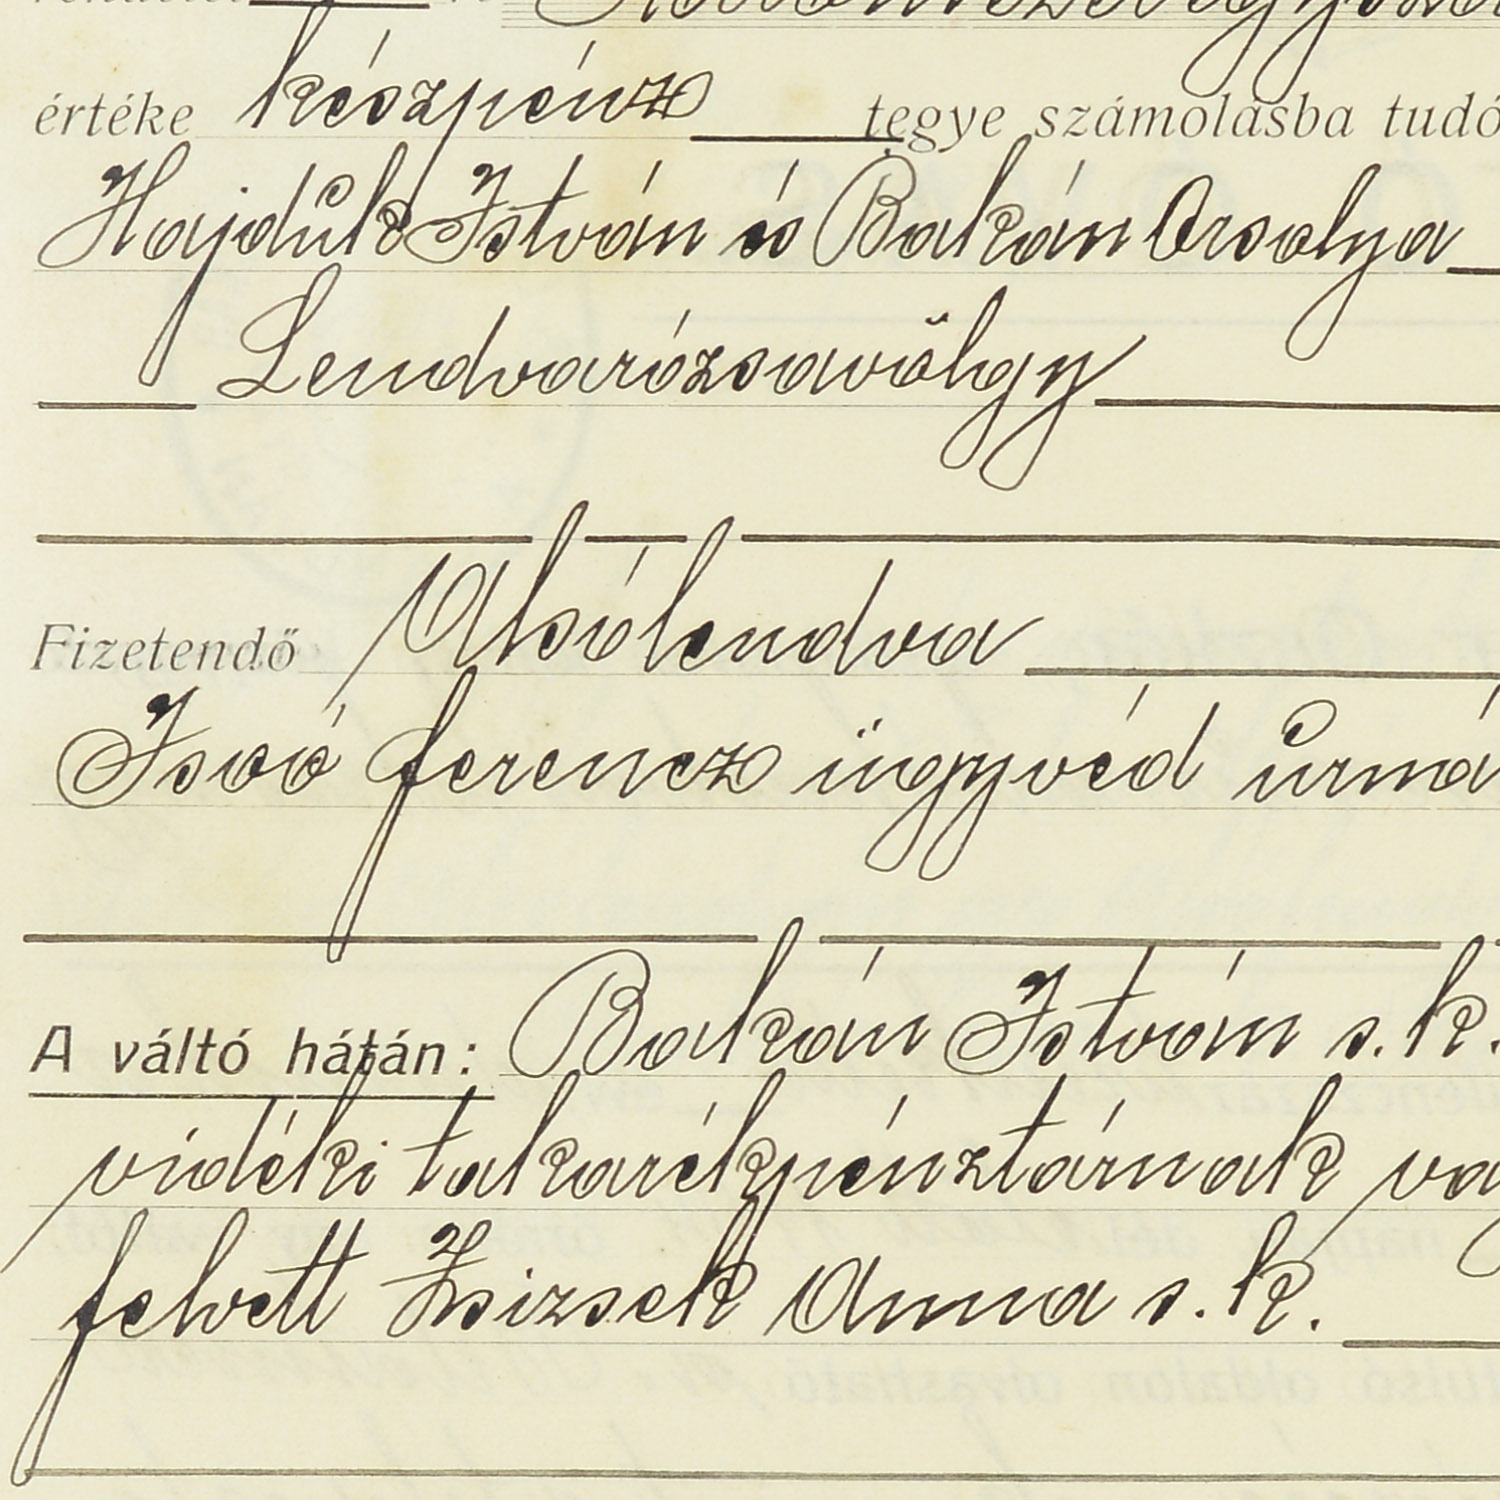 értéke készpénz tegye számolásba tudó
Hajdúk István és Bakán Orsolya
Lendvarózsavölgy
Fizetendő Alsólendva
Isoó ferencz ügyvéd úrná
A váltó hátán: Bakán István s. k.
vidéki takarékpénztárnak va
felvett Zsizsek Anna s. k.